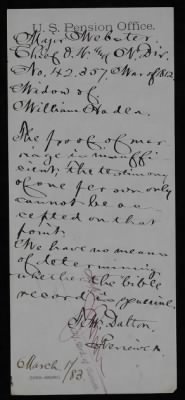 U.S. Pension Office.
Major Webster,
Chief O. W. & N. Div.
No. 42.357, War of 1812.
Widow of
William Haden.
The proof of mar
riage is insuffi
cient. The testimony
of one person only
cannot be ac
cepted on that
point.
We have no means
of determining
whether the bible
record is genuine.
Dalton,
Reviewer.
March 17/83.